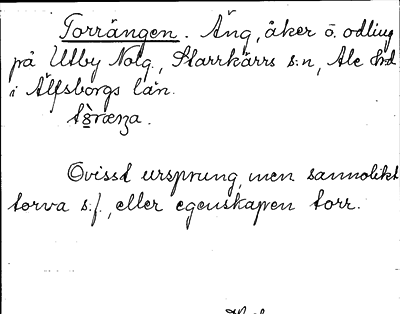 Torrängen. Äng, åker o. odling
på Ulby Nolg., Starrkärrs s:n, Ale hd
i Älfsborgs län.
Ovisst ursprung, men sannolikt
torva s.f., eller egenskapen torr.